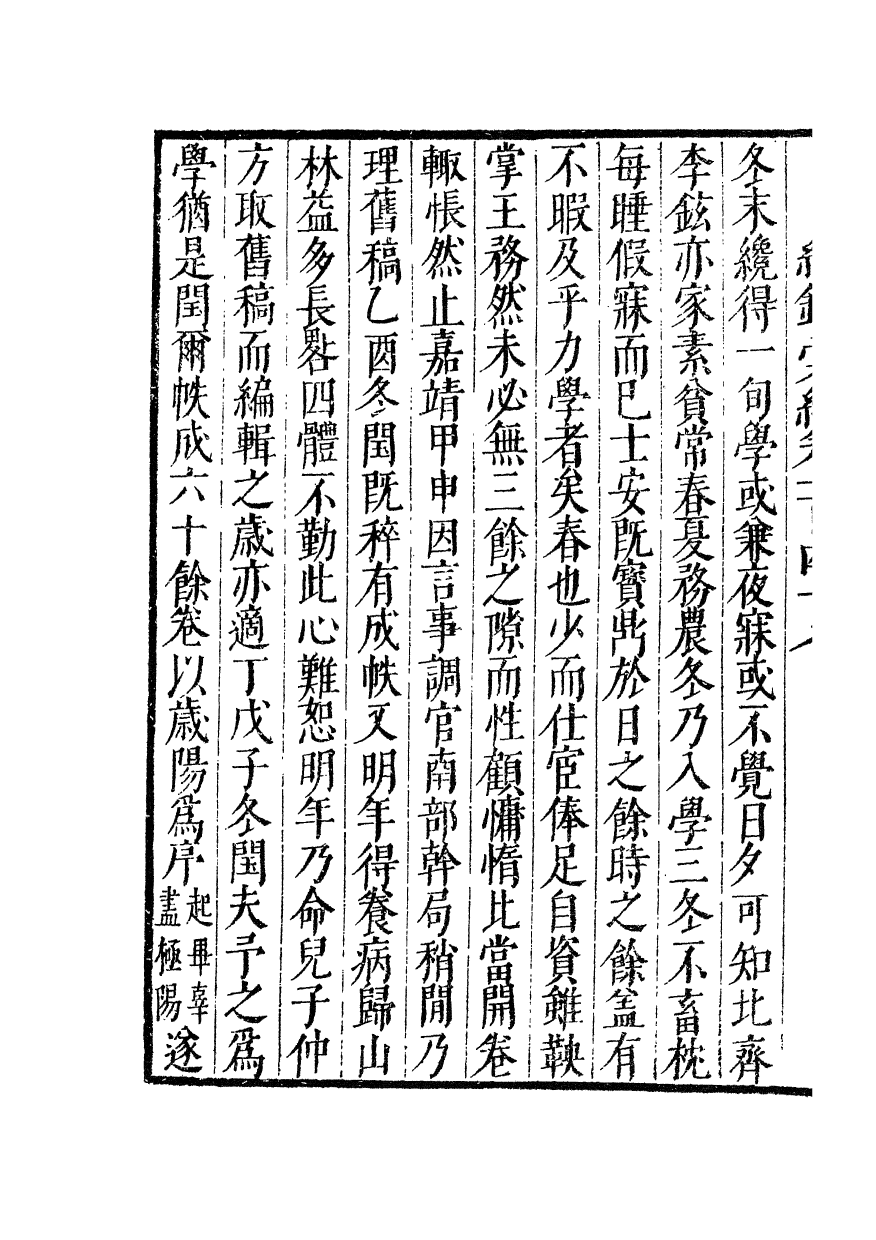 冬末纔得一旬學或兼夜寐或不覺日夕可知北齊
李鉉亦家素貧常春夏務農冬乃入學三冬不畜枕
每睡假寐而已士安既寶於日之餘時之餘盖有
不暇及乎力學者矣春也少而仕宦俸足自資雖鞅
掌王務然未必無三餘之隙而性顧慵惰比當開卷
輙悵然止嘉靖甲申因言事調官南部幹局稍閒乃
理舊稿乙酉冬閏既稡有成帙又明年得養病歸山
林益多長晷四體不勤此心難恕明年乃命兒子仲
方取舊稿而編輯之歲亦適丁戊子冬閏夫予之爲
學猶是閏爾帙成六十餘卷以歲陽爲序起畢辜盡極陽遂